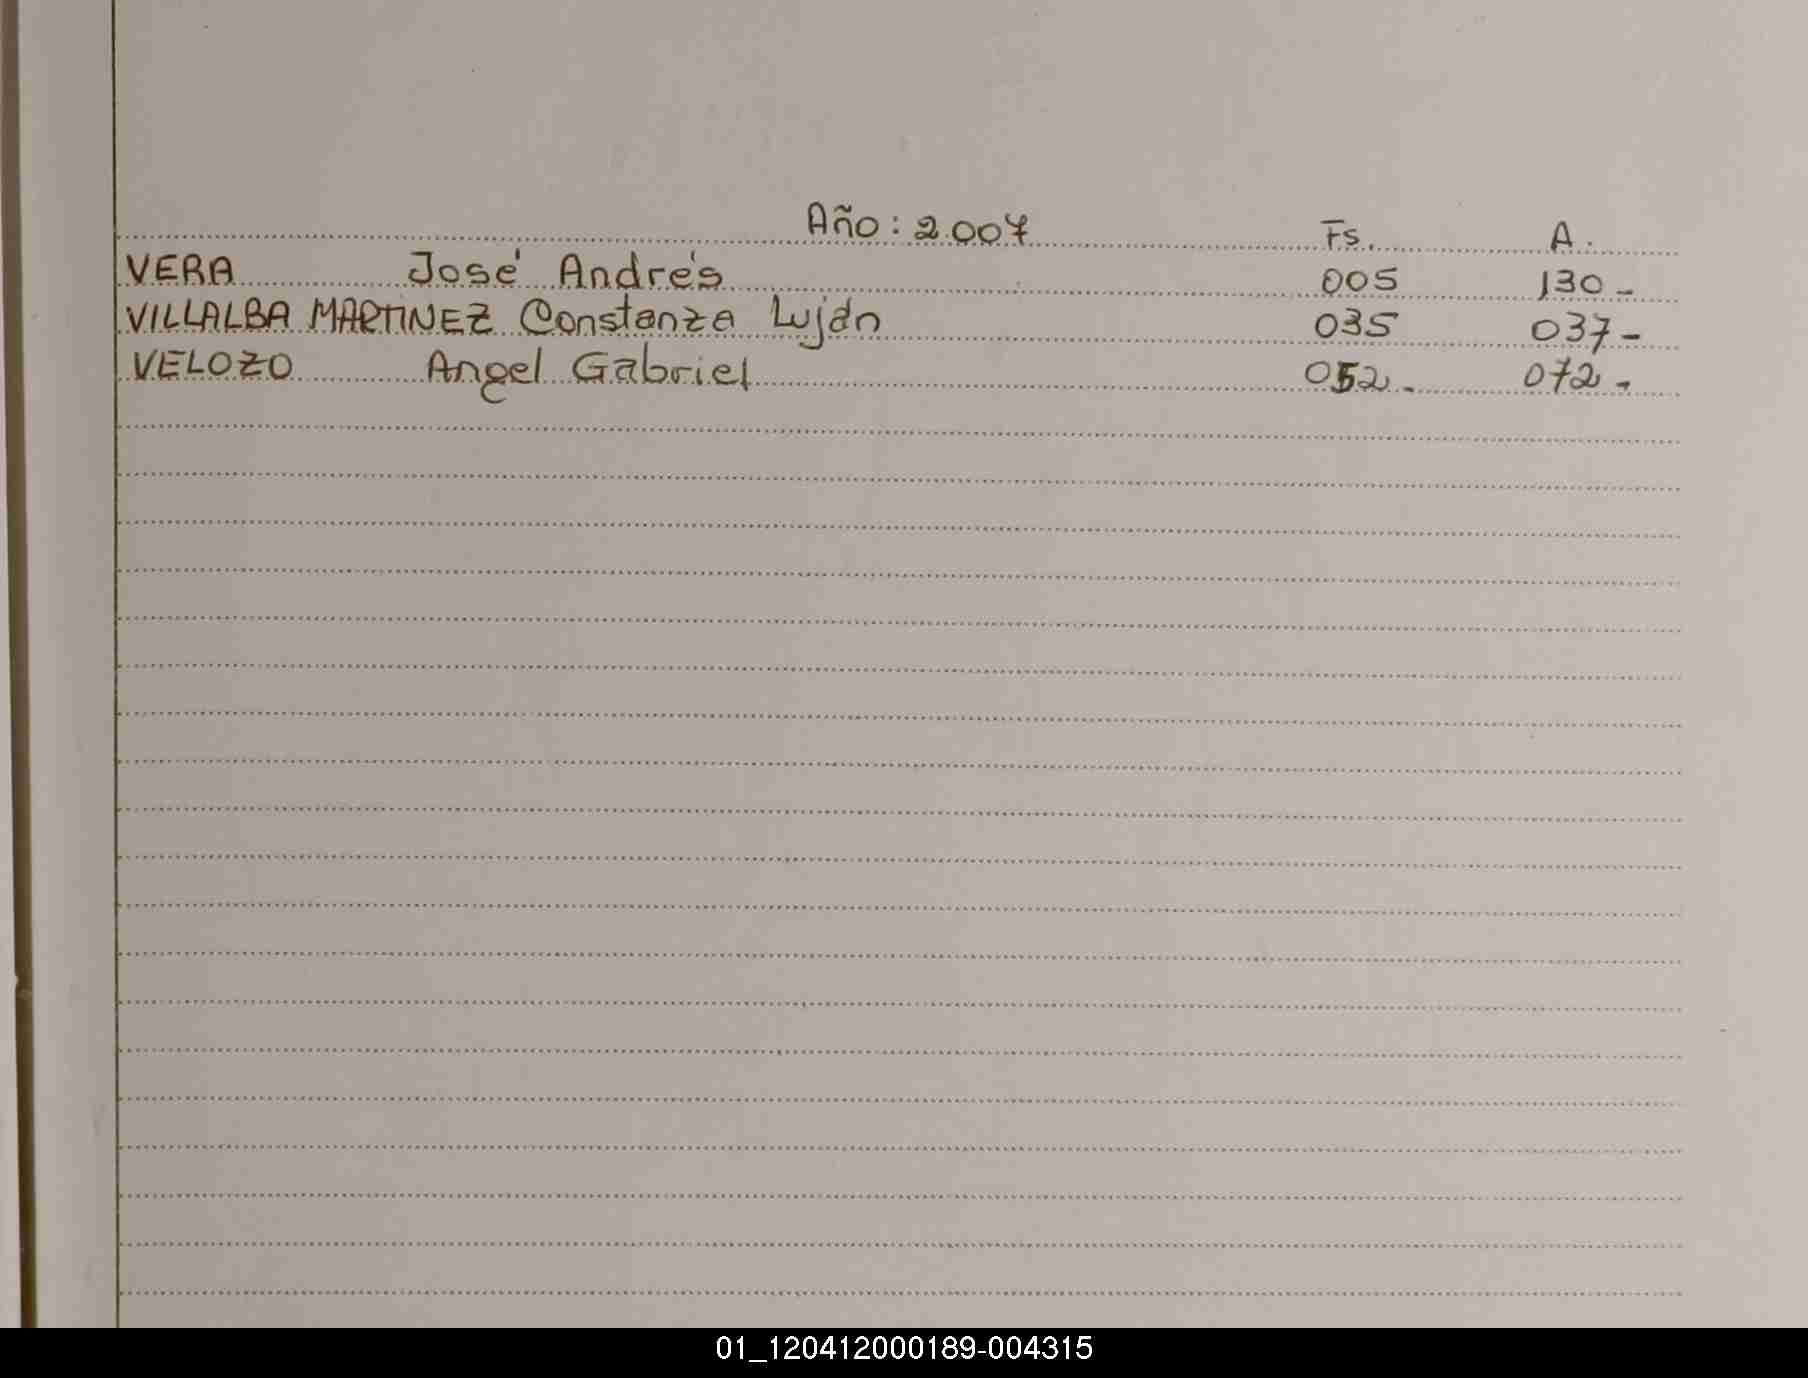 Año: 2.007 Fs. A.
VERA José Andrés 005 130-
VILLALBA MARTINEZ Constanza Luján 035 037-
VELOZO Angel Gabriel 052- 072-
01_120412000189-004315